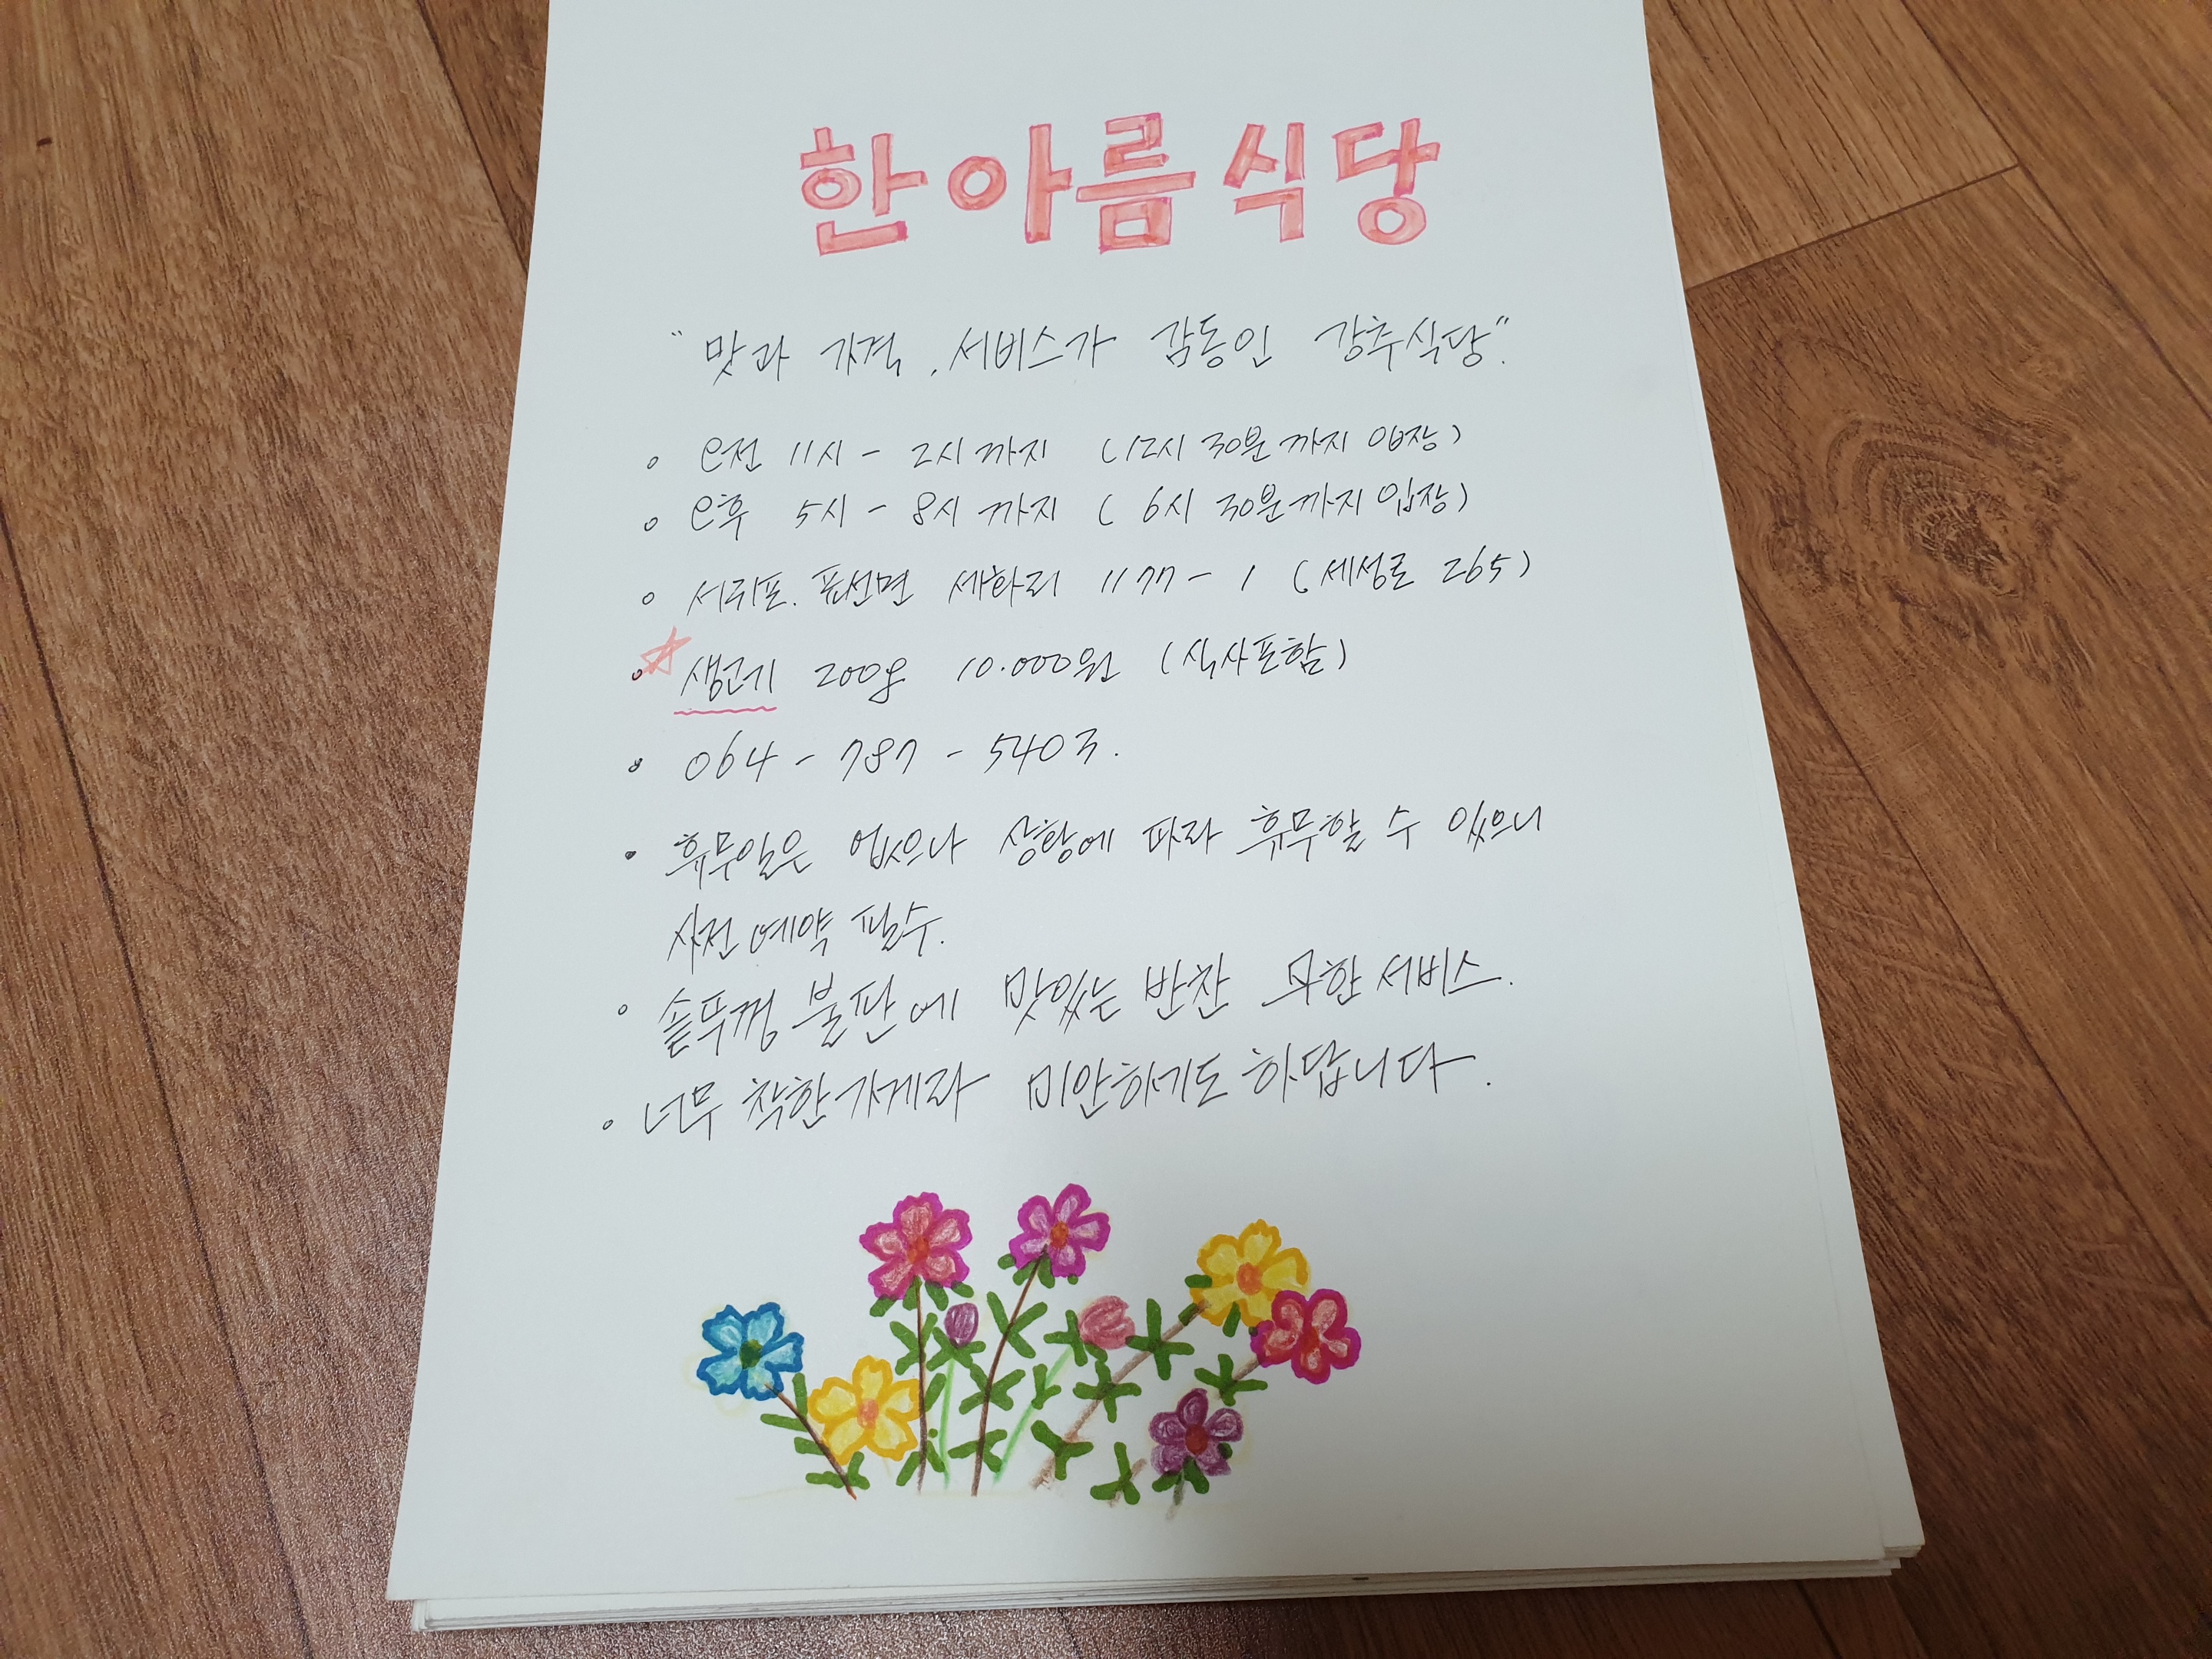 한아름식당
"맛과 가격, 서비스가 감동인 강추식당".
오전 11시 - 2시까지 (12시 30분까지 입장)
오후 5시 - 8시까지 ( 6시 30분까지 입장)
서귀포. 표선면 세화리 1177-1 (세성로 265)
☆ 생고기 200g 10.000원 (식사포함)
064-787-5403.
휴무일은 없으나 상황에 따라 휴무할 수 있으니
사전예약 필수.
솥뚜껑 불판에 맛있는 반찬 무한서비스.
너무 착한가게라 미안하기도 하답니다.